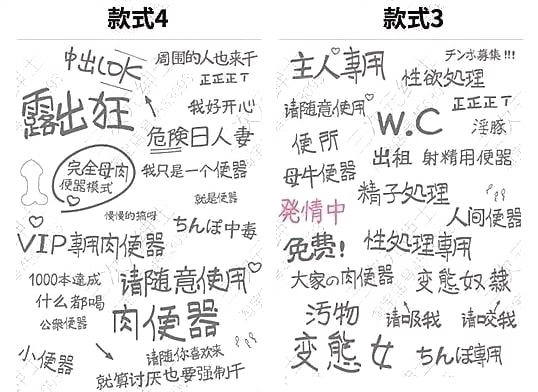 款式4
中出しOK
周围的人也来干
正正正T
露出狂
我好开心
危険日人妻
完全母肉
便器模式
我只是一个便器
就是便器
慢慢的搞呀
ちんぽ中毒
VIP専用肉便器
1000本達成
请随意使用
什么都喝
公衆便器
肉便器
小便器
请随你喜欢来
就算讨厌也要强制干
款式3
主人専用
チンポ募集!!!
性欲処理
请随意使用
W.C
正正正T
淫豚
便所
出租
射精用便器
母牛便器
精子処理
発情中
人间便器
免费!
性処理専用
大家の肉便器
変態奴隷
汚物
请吸我
请咬我
変態女
ちんぽ専用